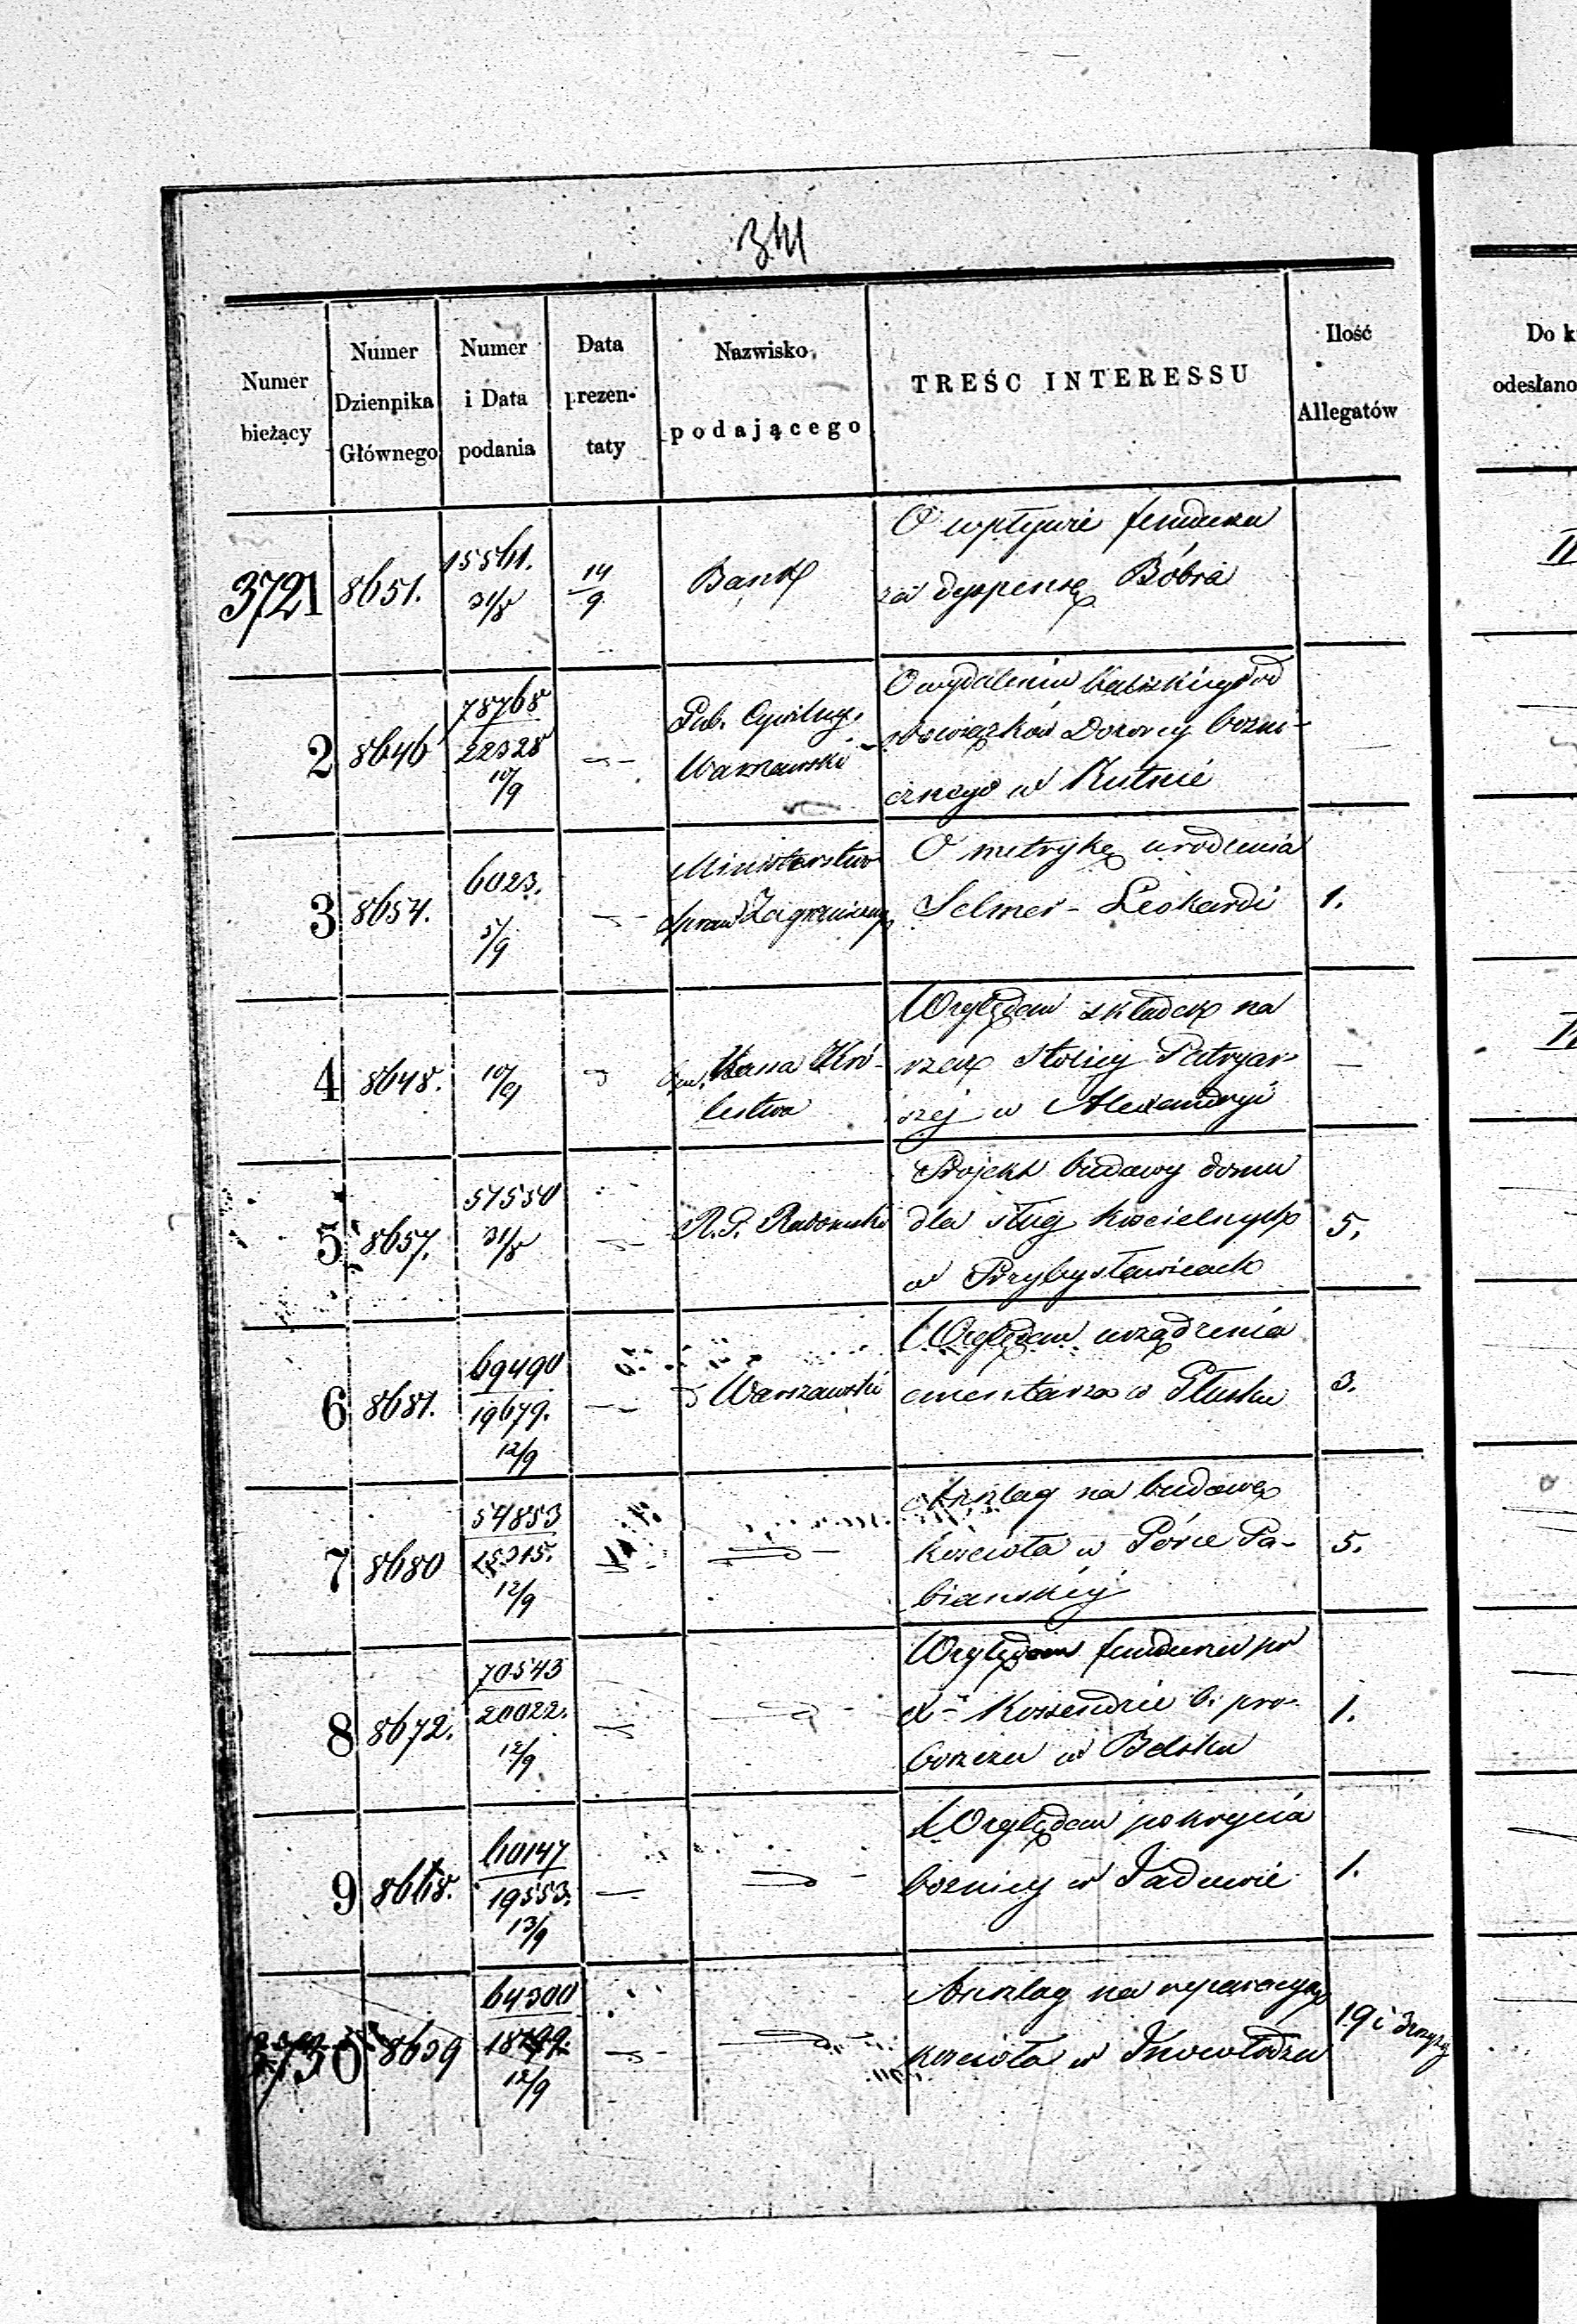 341
Numer bieżący
Numer Dziennika Głównego
Numer i Data podania
Data prezentaty
Nazwisko podającego
TREŚC INTERESSU
Ilość Allegatów
Do k
odesłano
3721
8651.
15561.
31/8
14/9
Bank
O wpływie funduszu
za dyspensę Bóbra
2
8646
78768
22328
10/9
Gub. Cywilny
Warszawski
O wydaleniu Kaliskiego od
obowiązków Dozorcy bożni-
cznego w Kutnie
3
8654.
6023.
5/9
Ministerstwo
Spraw Zagranicznych
O metrykę urodzenia
Selmer - Leokardi
1.
4
8648.
10/9
Kassa Kró-
lestwa
Względem składek na
rzecz Stolicy Patryar-
szej w Alexandryi
5
8657.
57530
31/8
R. G. Radomski
Projekt budowy domu
dla sług kościelnych
w Przybysławicach
5.
6
8681.
69490
19679.
12/9
Warszawski
Względem urządzenia
cmentarza w Płusku
3.
7
8680
54853
15315.
12/9
Anszlag na budowę
kościoła w Górce Pa-
bianskiej
5.
8
8672.
70543
20022.
12/9
Względem funduszu po
Xu Kossendzie b. pro-
boszczu w Belsku
1.
9
8668.
60147
19553.
13/9
Względem pokrycia
bożnicy w Jadowie
1.
3730
8639
64300
18199.
12/9
Anszlag na reparacyę
kościoła w Inowłodzu
19 i